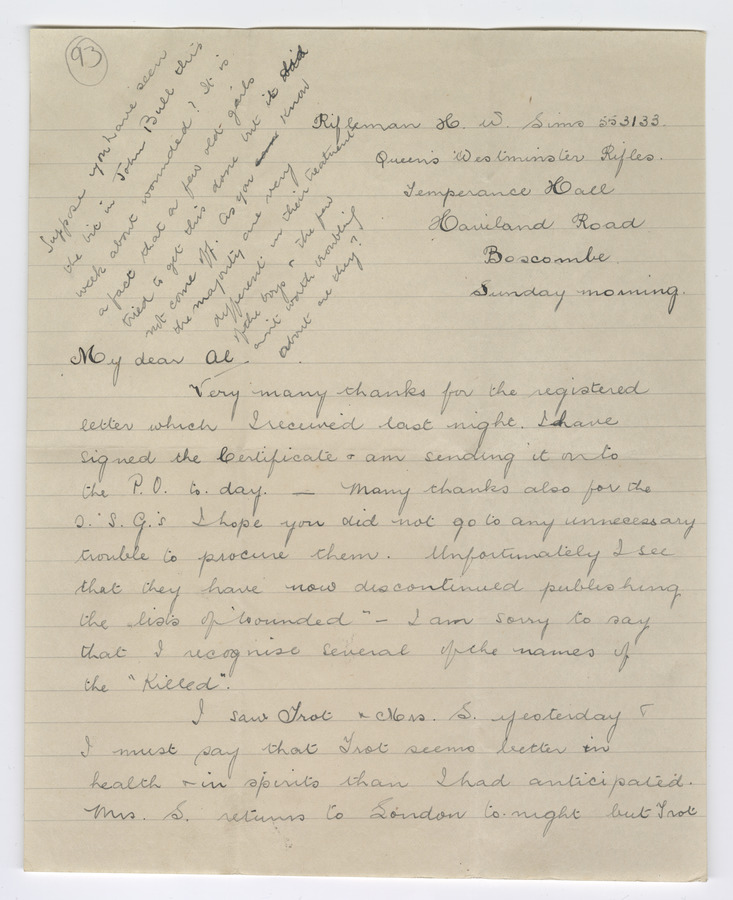 93
Suppose you have seen
the bit in John Bull this
week about wounded? It is
a fact that a few old girls
tried to get this done but it did
not come off. As you know
the majority are very
different in their treatment
of the boys & the few
ain't worth troubling
about are they?
Rifleman H. W. Sims 553133.
Queen's Westminster Rifles.
Temperance Hall
Haviland Road
Boscombe.
Sunday morning.
My dear Al.
Very many thanks for the registered
letter which I received last night. I have
signed the Certificate & am sending it on to
the P.O. to.day. — Many thanks also for the
S.G.'s I hope you did not go to any unnecessary
trouble to procure them. Unfortunately I see
that they have now discontinued publishing
the lists of "Wounded" – I am sorry to say
that I recognise several of the names of
the "Killed".
I saw Trot & Mrs. S. yesterday &
I must say that Trot seems better in
health & in spirits than I had anticipated.
Mrs. S. returns to London to.night but Trot